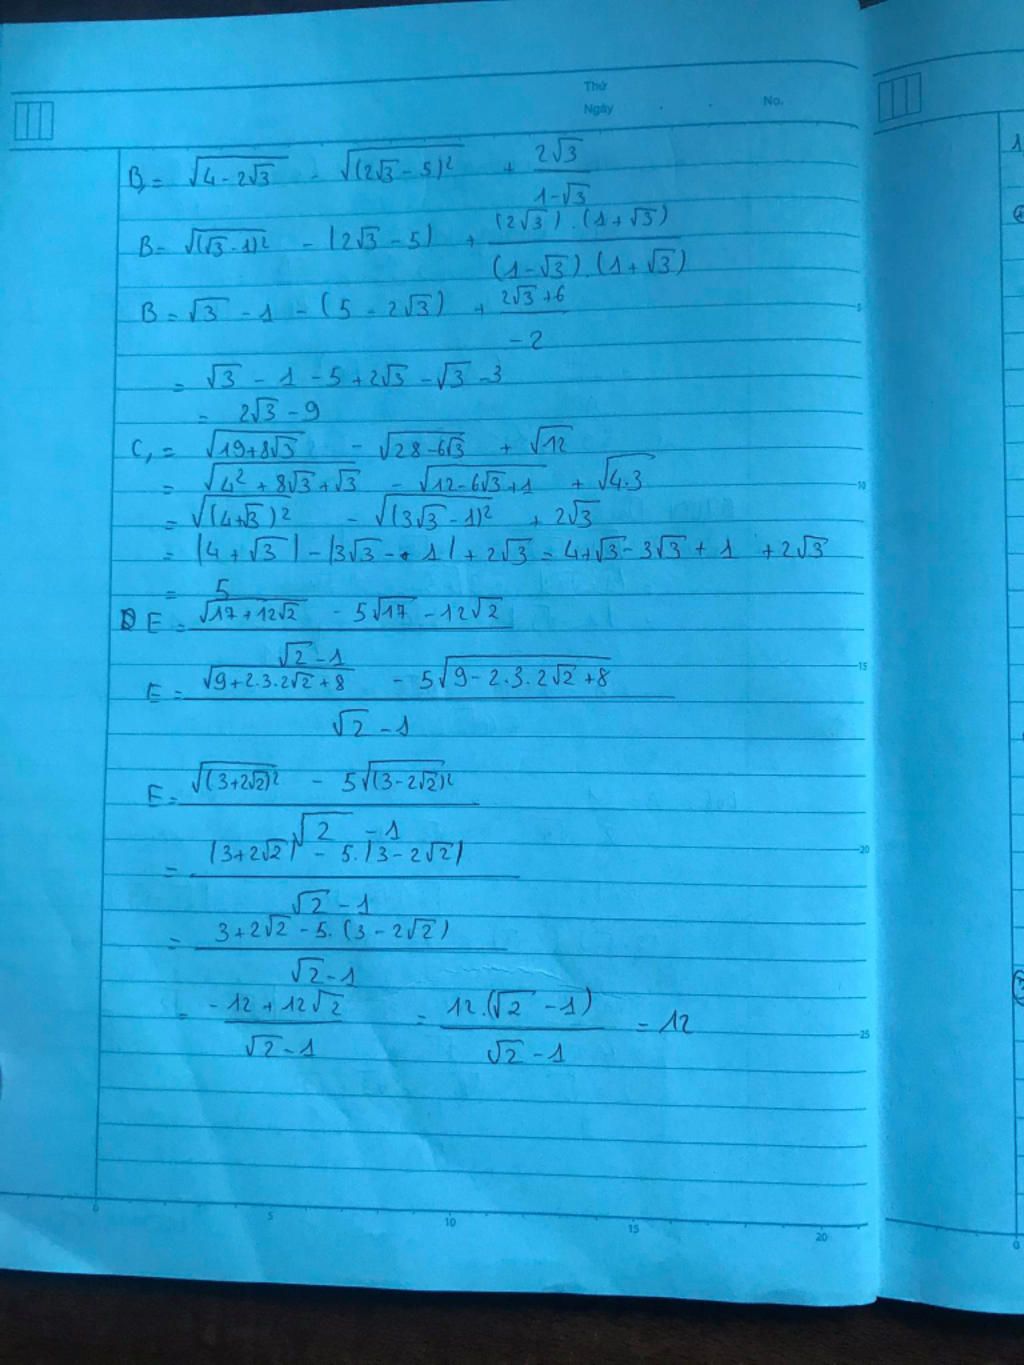 Thứ
Ngày . . No.
B, = √(4-2√3) - √((2√3-5)²) + 2√3/(1-√3)
B = √((√3-1)²) - |2√3-5| + (2√3).(1+√3)/((1-√3).(1+√3))
B = √3 - 1 - (5-2√3) + (2√3+6)/(-2)
= √3 - 1 - 5 + 2√3 - √3 - 3
= 2√3 - 9
C, = √(19+8√3) - √(28-6√3) + √12
= √(4²+8√3+√3) - √(12-6√3+1) + √(4.3)
= √((4+√3)²) - √((3√3-1)²) + 2√3
= |4+√3| - |3√3-1| + 2√3 = 4+√3-3√3+1+2√3
= 5
E = (√(17+12√2) - 5√17 - 12√2)/(√2-1)
E = (√(9+2.3.2√2+8) - 5√(9-2.3.2√2+8))/(√2-1)
E = (√((3+2√2)²) - 5√((3-2√2)²))/(√2-1)
= (|3+2√2| - 5.|3-2√2|)/(√2-1)
= (3+2√2-5.(3-2√2))/(√2-1)
= (-12+12√2)/(√2-1) = 12.(√2-1)/(√2-1) = 12
5
10
15
20
25
0 5 10 15 20
1
0